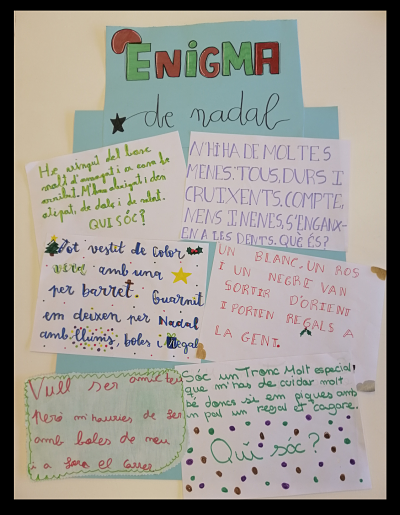 ENIGMA
de nadal
He vingut del bosc
molt d'amagat i a casa he
arribat. M'han abrigat i don
atipat, de dols i de salat.
QUI SÓC?
N'HI HA DE MOLTES
MENES: TOUS, DURS I
CRUIXENTS. COMPTE,
NENS I NENES, S'ENGANX-
EN A LES DENTS. QUÈ ÉS?
Tot vestit de color
verd amb una
per barret. Guarnit
em deixen per Nadal
amb llums, boles i regal
UN BLANC, UN ROS
I UN NEGRE VAN
SORTIR D'ORIENT
I PORTEN REGALS A
LA GENT.
Vull ser amic teu
però m'hauries de fer
amb boles de neu
i a fora el carrer
Sóc un Tronc Molt especial
que m'has de cuidar molt
bé doncs si em piques amb
un pal un regal et cagaré.
Qui sóc?